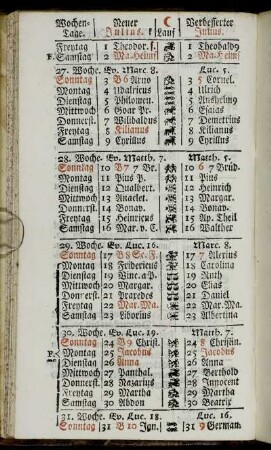 Wochen- Neuer ☾ Verbesserter
Tage. Julius. Lauf Julius.
Freytag 1 Theodor. 1 Theobald9
F. Samstag 2 Ma. Heims 2 Ma. Heims
27. Woche. Ev. Marc. 8. Luc. 5.
Sonntag 3 B6 3 5 Cornel.
Montag 4 Udalricus 4 Ulrich
Dienstag 5 Philomen. 5
Mittwoch 6 Goar Pr. 6 Esaias
Donnerst. 7 Wilibaldus 7 Demetrius
Freytag 8 Kilianus 8 Kilianus
Samstag 9 Cyrillus 9 Cyrillus
28. Woche. Ev. Matth. 7. Matth. 5.
Sonntag 10 B7 7 Br. 10 6 7 Brüd.
Montag 11 Pius P. 11 Pius
Dienstag 12 Gualbert. 12 Heinrich
Mittwoch 13 Anaclet. 13 Margar.
Donnerst. 14 Bonav. 14 Bonav.
Freytag 15 Heinricus 15 Ap. Theil
Samstag 16 Mar. v. C. 16 Walther
29. Woche. Ev. Luc. 16. Marc. 8.
Sonntag 17 B8 Sc. F. 17 7 Alexius
Montag 18 Fridericus 18 Carolina
Dienstag 19 Vinc. a P. 19 Ruth
Mittwoch 20 Margar. 20 Elias
Donnerst. 21 Praxedes 21 Daniel
Freytag 22 Mar. Ma. 22 Mar. Ma.
Samstag 23 Liborius 23 Albertina
30. Woche. Ev. Luc. 19. Matth. 7.
Sonntag 24 B9 Christ. 24 8 Christin.
F. Montag 25 Jacobus 25 Jacobus
Dienstag 26 Anna 26 Anna
Mittwoch 27 Panthal. 27 Berthold
Donnerst. 28 Nazarius 28 Innocent
Freytag 29 Martha 29 Martha
Samstag 30 Abdon 30 Beatrix
31. Woche. Ev. Luc. 18. Luc. 16.
Sonntag 31 B 10 Ign. 31 9 German